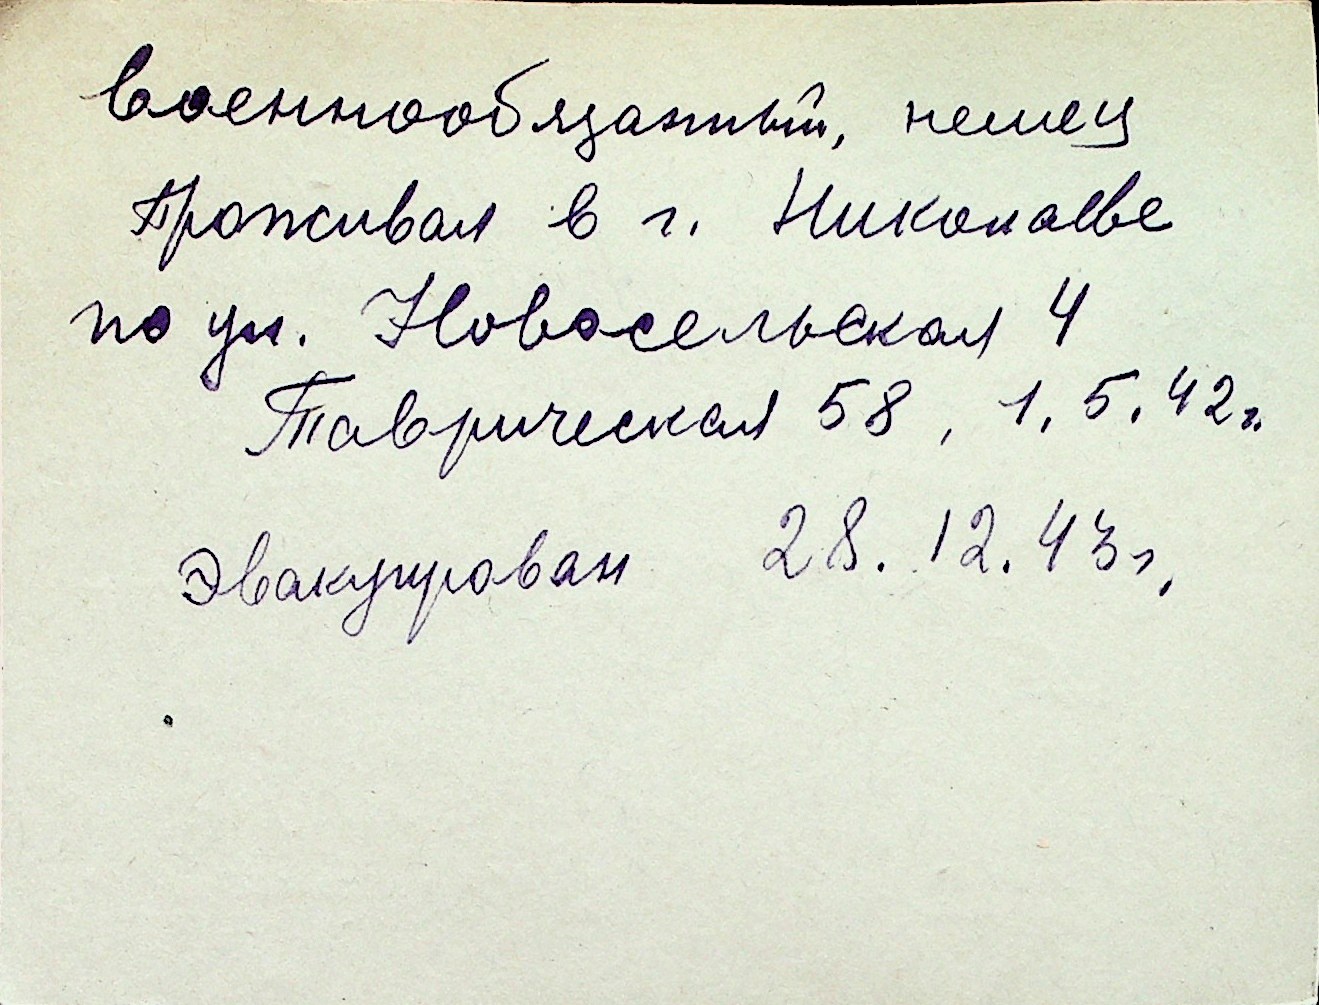 военнообязанный, немец
Проживал в г. Николаеве
по ул. Новосельская 4
Таврическая 58, 1.5.42г.
Эвакуирован 28.12.43г.